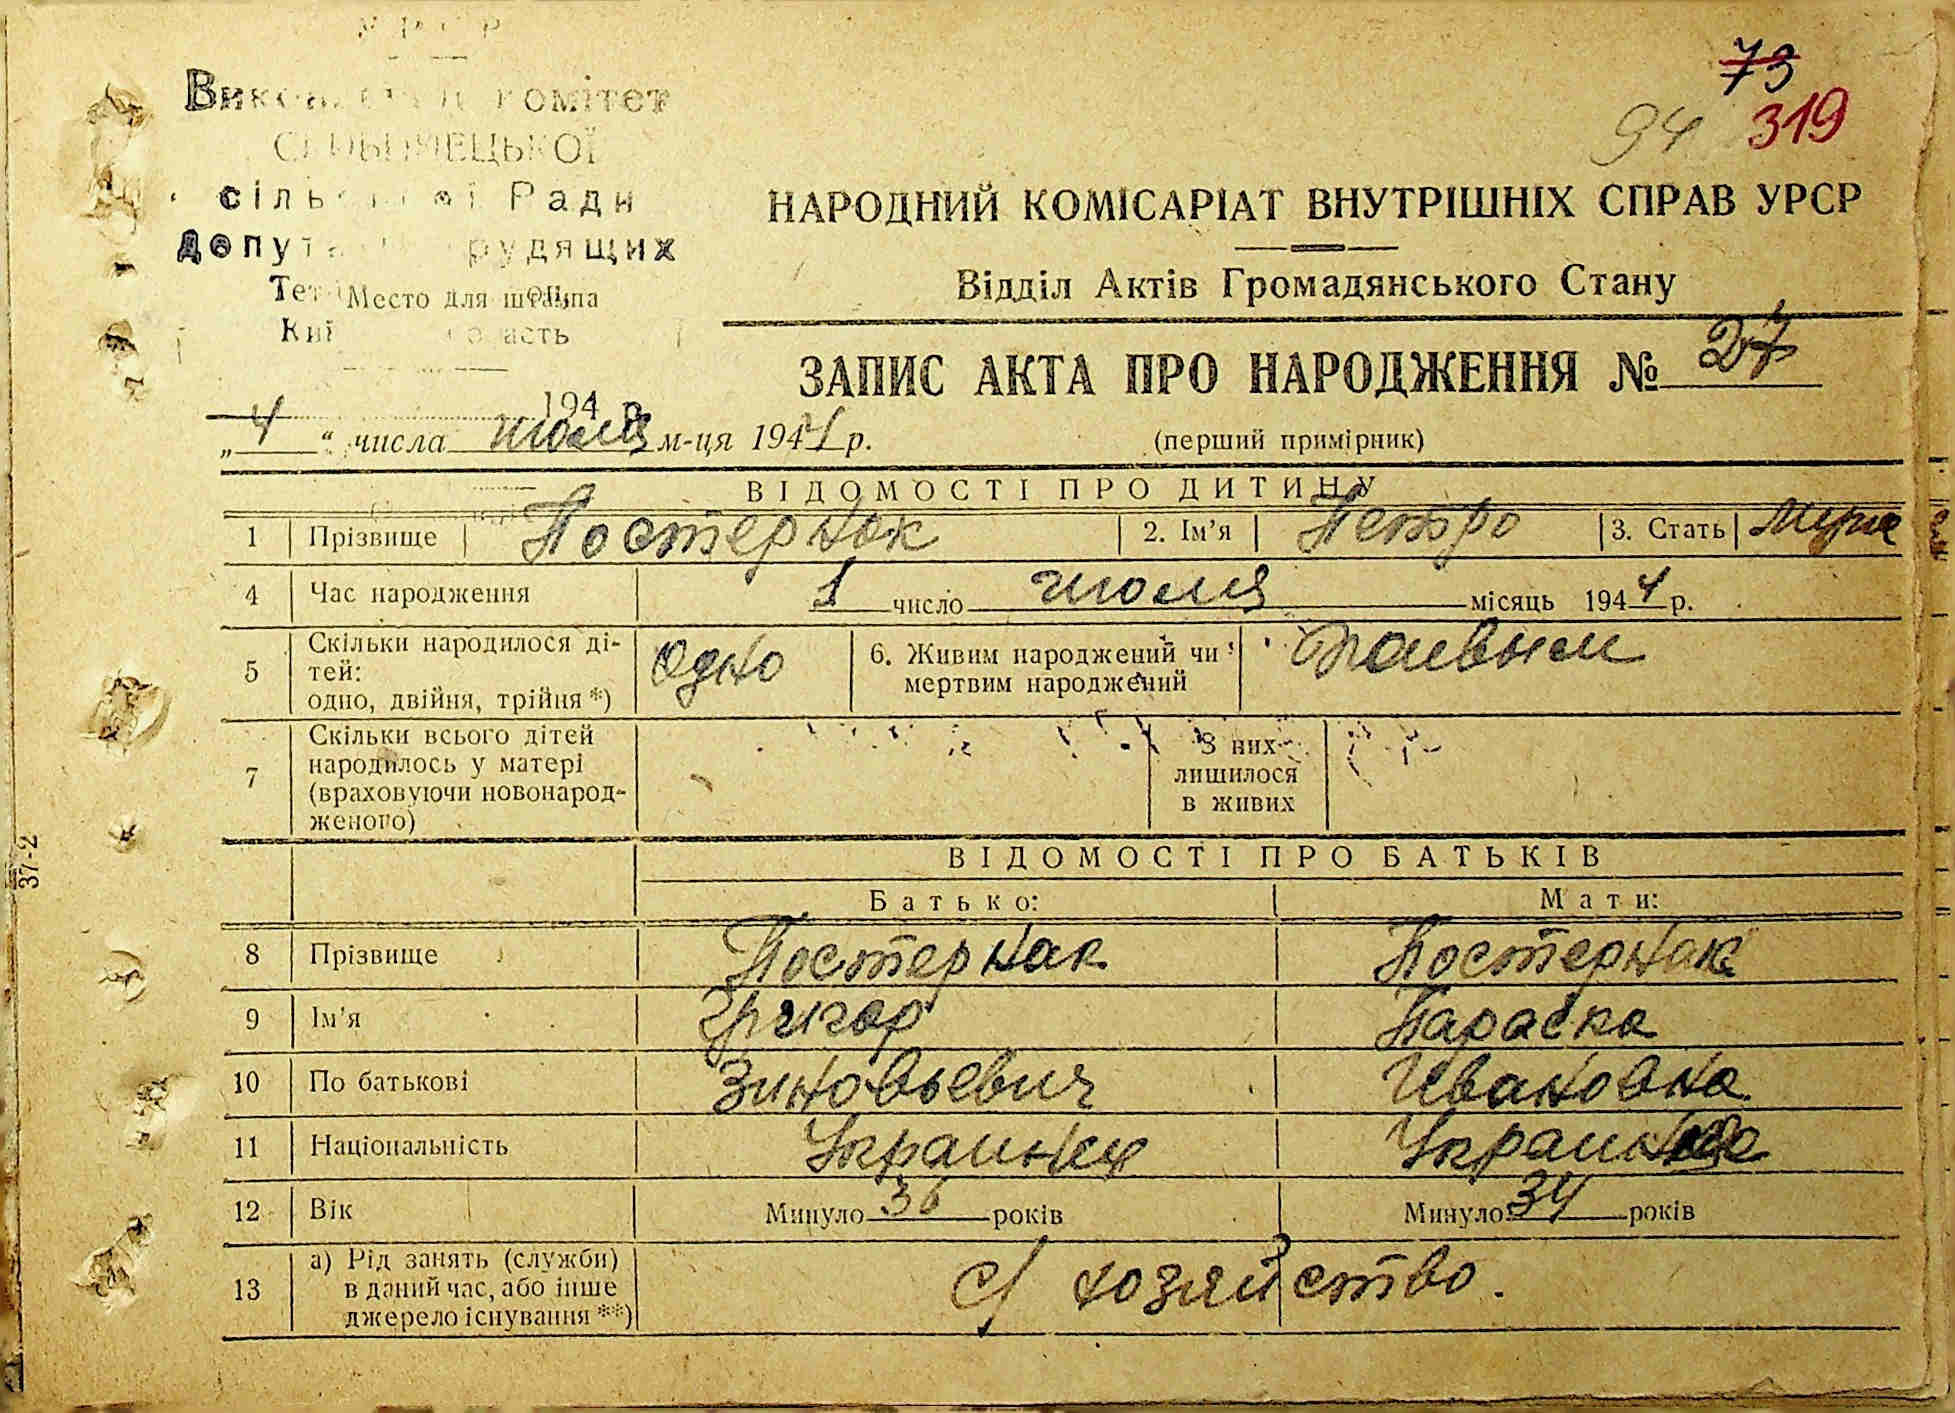 73
94 319
комітет
Ради
рудящих
Место для штампа
194 р.
НАРОДНИЙ КОМІСАРІАТ ВНУТРІШНІХ СПРАВ УРСР
Відділ Актів Громадянського Стану
ЗАПИС АКТА ПРО НАРОДЖЕННЯ № 27
„4“ числа июля м-ця 1944 р. (перший примірник)
ВІДОМОСТІ ПРО ДИТИНУ
1 Прізвище Постернак 2. Ім'я Петро 3. Стать
4 Час народження 1 число июля місяць 1944 р.
5 Скільки народилося ді-
тей:
одно, двійня, трійня *) одно 6. Живим народжений чи
мертвим народжений
7 Скільки всього дітей
народилось у матері
(враховуючи новонарод-
женого)
З них
лишилося
в живих
ВІДОМОСТІ ПРО БАТЬКІВ
Батько: Мати:
8 Прізвище Постернак Постернак
9 Ім'я Григор Параска
10 По батькові Зиновьевич Ивановна
11 Національність Украинец Украинка
12 Вік Минуло 36 років Минуло 34 років
13 а) Рід занять (служби)
в даний час, або інше
джерело існування **) с/хозяйство.
37-2